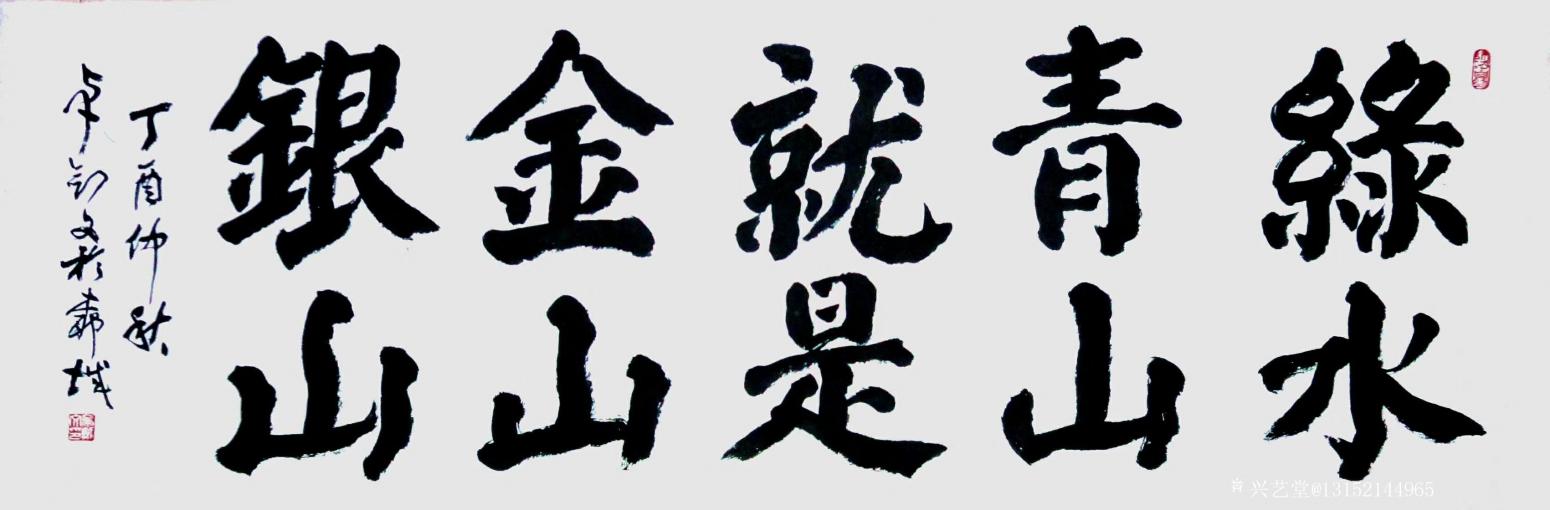 綠水
青山
就是
金山
銀山
丁酉仲秋
卓剑文於
兴艺堂@13152144965